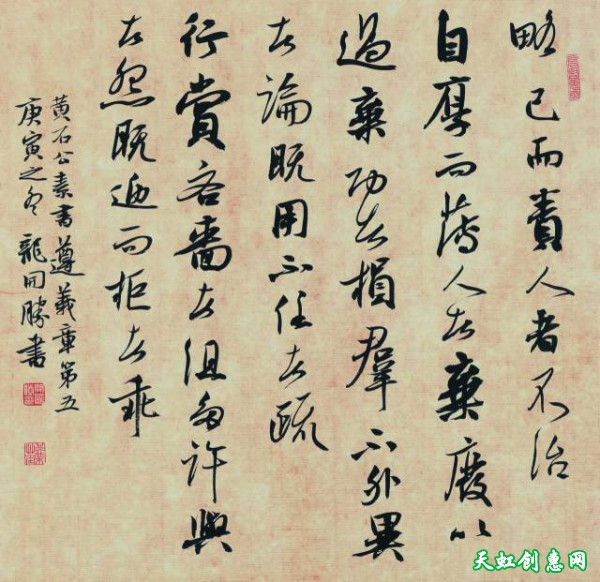 略己而責人者不治
自厚而薄人者棄廢以
過棄功者損羣下外異
者論既用不任者疏
行賞吝嗇者沮多許與
者怨既迎而拒者乖
黄石公素書遵義章第五
庚寅之冬 龍開勝書
天虹创惠网